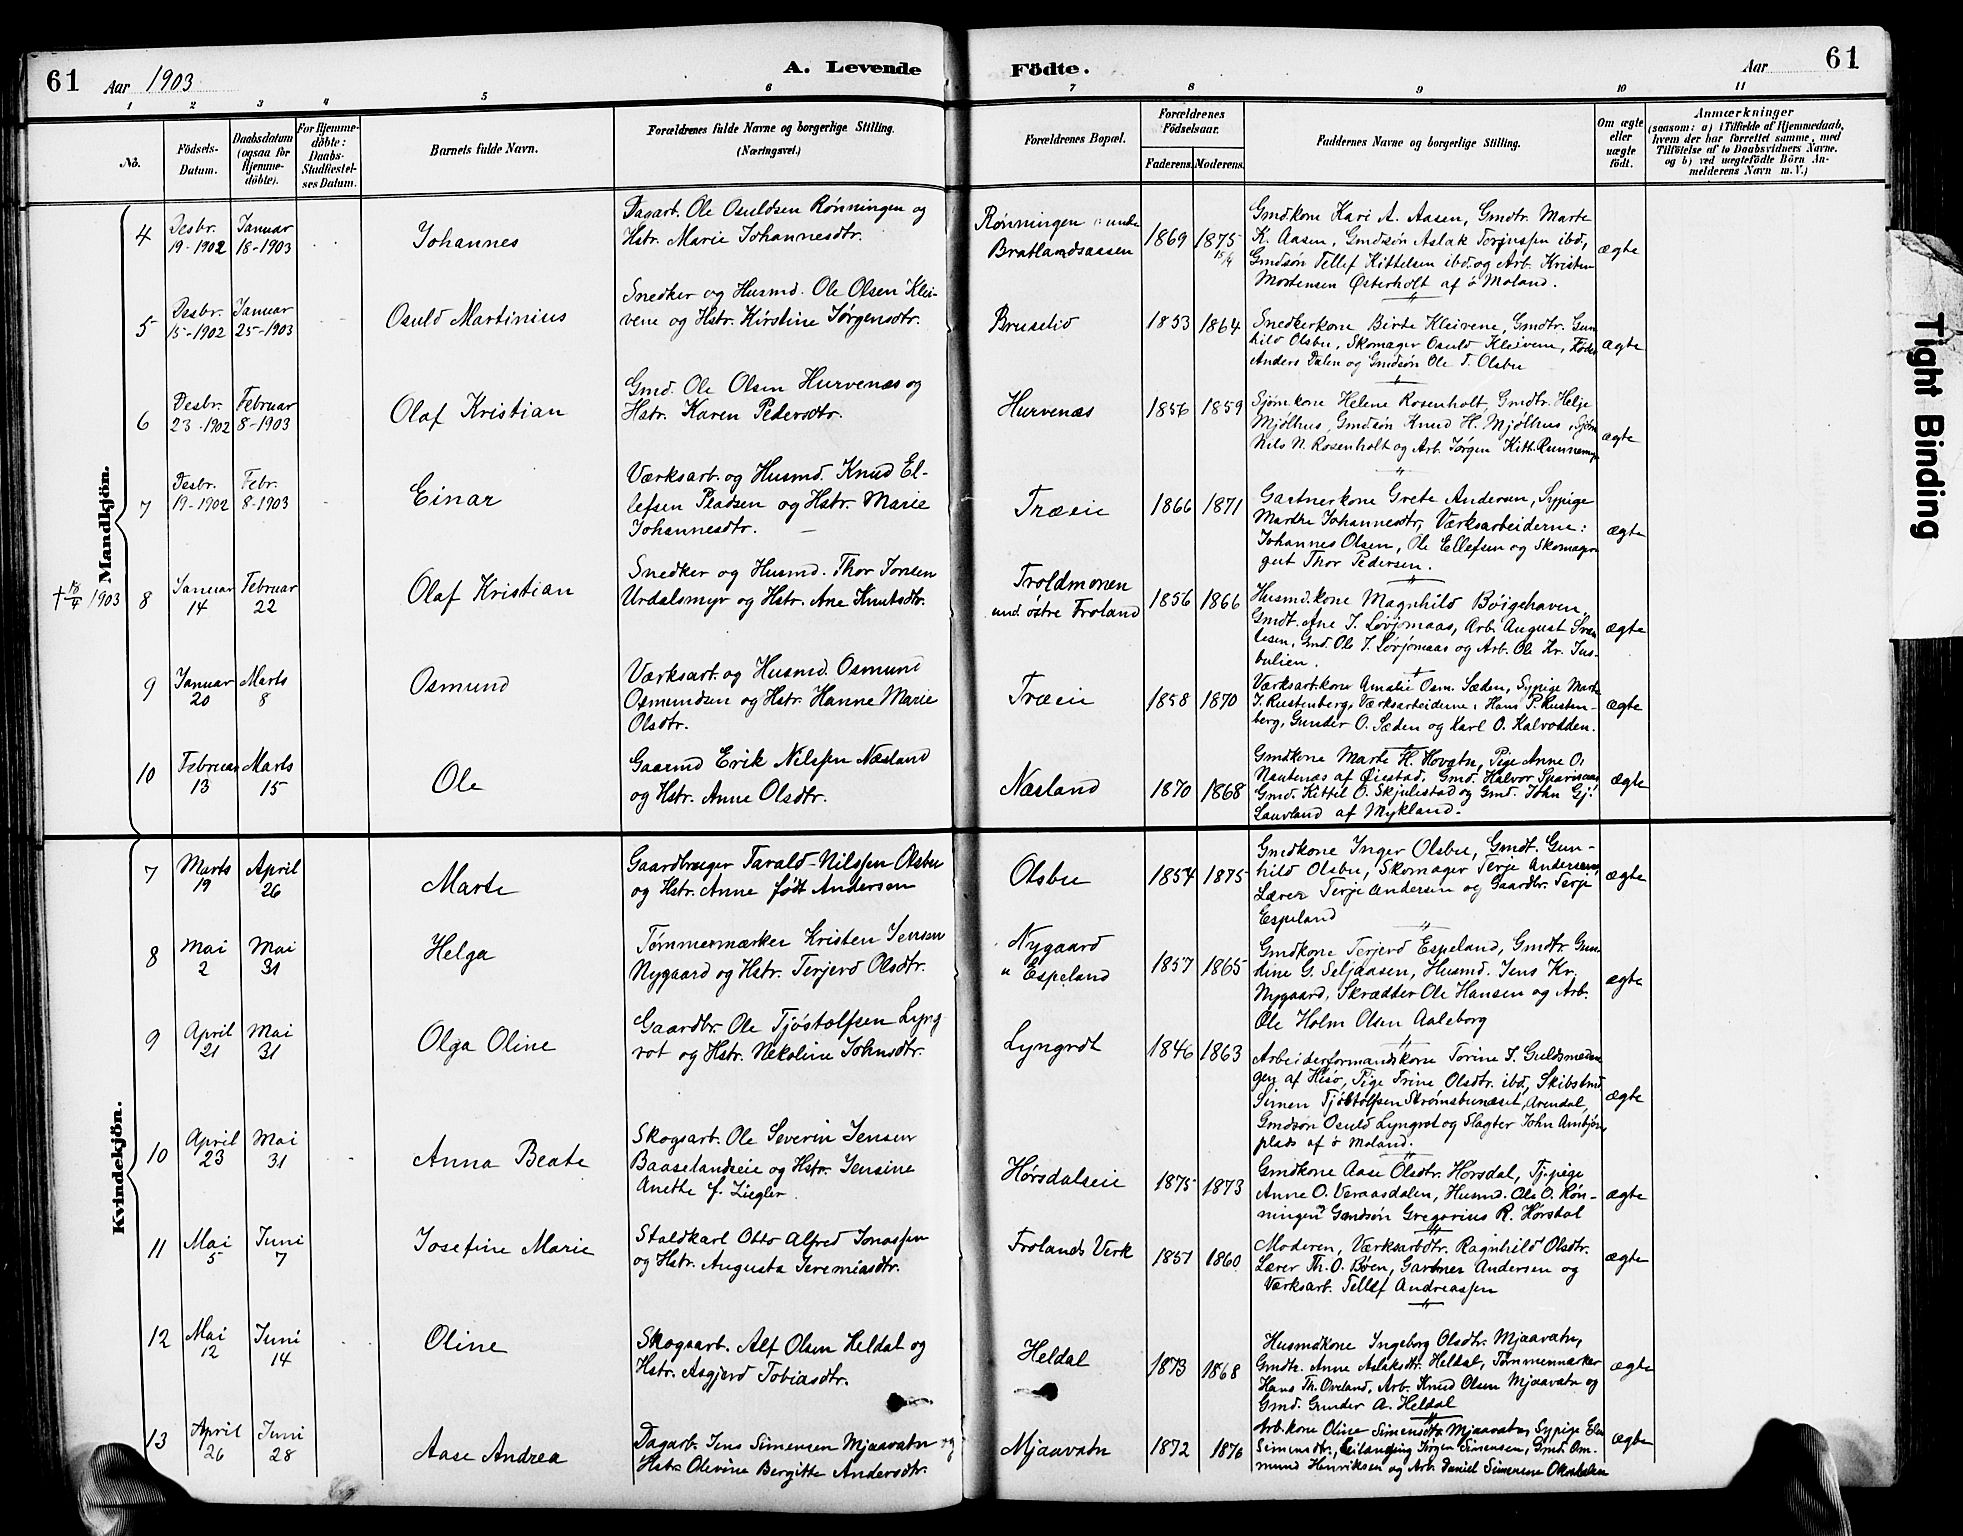 61 Aar 1903 A. Levende Födte. Aar 61
1 2 3 4 5 6 7 8 9 10 11
No.
Födsels-
Datum.
Daabsdatum
(ogsaa for
Hjemme-
döbte).
For Hjemme-
döbte:
Daabs-
Stadfæstel-
ses Datum.
Barnets fulde Navn.
Forældrenes fulde Navne og borgerlige Stilling.
(Næringsvei.)
Forældrenes Bopæl.
Forældrenes
Födselsaar.
Faderens. Moderens.
Faddernes Navne og borgerlige Stilling.
Om ægte
eller
uægte
födt.
Anmærkninger
(saasom: a) i Tilfælde af Hjemmedaab,
hvem der har forrettet samme, med
Tilföielse af to Daabsvidners Navne.
og b) ved uægtefödte Börn An-
melderens Navn m. V.)
Mandkjön.
4
Desbr.
19-1902
Januar
18-1903
Johannes
Dagarb. Ole Osuldsen Rønningen og
Hstr. Marie Johannesdtr.
Rønningen unde
Bratlandsaasen
1869 1875
15/9
Gmdkone Kari A. Aasen, Gmdtr. Marte
K. Aasen, Gmdsøn Aslak Torjussen ibd,
Gmdsøn Tellef Kittelsen ibd. og Arb. Kristen
Mortensen Østerholt af ö Moland.
ægte
5
Desbr.
15-1902
Januar
25-1903
Osuld Martinius
Snedker og Husmd. Ole Olsen Klei-
vene og Hstr. Kirstine Jørgensdtr.
Bruselid
1853 1864
Snedkerkone Birte Kleivene, Gmdtr. Gun
hild Olsbu, Skomager Osuld Kleivene,
Anders Dalen og Gmdsøn Ole T. Olsbu
ægte
6
Desbr.
23-1902
Februar
8-1903
Olaf Kristian
Gmd. Ole Olsen Hurvenæs og
Hstr. Karen Pedersdtr.
Hurvenæs
1856 1859
Sjømkone Helene Rosenholt, Gmdtr. Helje
Mjølhus, Gmdsøn Knud H. Mjølhus, Sjøm
Nils N. Rosenholt og Arb. Jørgen Kitt.
ægte
7
Desbr.
19-1902
Febr.
8-1903
Einar
Værksarb. og Husmd. Knud El-
lefsen Pladsen og Hstr. Marie
Johannesdtr.
Træeie
1866 1871
Gartnerkone Grete Andersen, Sypige
Marthe Johannesdtr, Værksarbeiderne:
Johannes Olsen, Ole Ellefsen og Skomager
gut Thor Pedersen.
ægte
† 18/4 1903
8
Januar
14
Februar
22
Olaf Kristian
Snedker og Husmd. Thor Jonsen
Urdalsmyr og Hstr. Ane Knutsdtr.
Troldmonen
und. østre Froland
1856 1866
Husmd.kone Magnhild Bøigehaven,
Gmdt. Ane J. Lørjomaas, Arb. August Sven
lesen, Gmd. Ole J. Lørjomaas og Arb. Ole Kr. Jus-
bulien.
ægte
9
Januar
20
Marts
8
Osmund
Værksarb. og Husmd. Osmund
Osmundsen og Hstr. Hanne Marie
Olsdtr.
Træeie
1858 1870
Værksarb.kone Amalie Osm. Sæden, Sypige Marte
J. Rustenberg, Værksarbeiderne: Hans P. Rusten-
berg, Gunder O. Sæden og Karl O. Kalvodden.
ægte
10
Februar
13
Marts
15
Ole
Gaarmd Erik Nilssen Næsland
og Hstr. Anne Olsdtr.
Næsland
1870 1868
Gmdkone Marte H. Hovatn, Pige Anne O.
Nautenæs af Øiestad. Gmd. Halvor
Gmd. Kittel O. Skjulestad og Gmd. John Gj.
Laurland af Mykland.
ægte
Kvindekjön.
7
Marts
19
April
26
Marte
Gaardbruger Tarald Nilssen Olsbu
og Hstr. Anne født Andersen
Olsbu
1854 1875
Gmdkone Inger Olsbu, Gmdt. Gun-
hild Olsbu, Skomager Terje Andersen,
Lærer Terje Andersen og Gaardbr. Terje
Espeland
ægte
8
Mai
2
Mai
31
Helga
Tømmermærker Kristen Jensen
Nygaard og Hstr. Terjerd Olsdtr.
Nygaard
" Espeland
1857 1865
Gmdkone Terjerd Espeland, Gmdtr. Gun
dine G. Seljaasen, Husmd. Jens Kr.
Nygaard, Skrædder Ole Hansen og Arb.
Ole Holm Olsen Aaleborg
ægte
9
April
21
Mai
31
Olga Oline
Gaardbr. Ole Tjøstolfsen Lyng
rot og Hstr. Nekoline Johnsdtr.
Lyngrot
1846 1863
Arbeiderformandskone Torine J. Guldsmeden
gen af Hisø, Pige Trine Olsdtr. ibd, Skibstmd
Simen Tjøstolfsen Strømsbunæset, Arendal,
Gmdsøn Osuld Lyngrot og Slagter John Ambjøns
plads af ö Moland.
ægte
10
April
23
Mai
31
Anna Beate
Skogsarb. Ole Severin Jensen
Baaselandseie og Hstr. Jensine
Anethe f. Ziegler.
Hørsdalseie
1875 1873
Gmdkone Aase Olsdtr. Hørsdal, Tj.pige
Anne O. Veraasdalen, Husmd. Ole O. Røn-
ningen Gmdsøn Gregorius R. Hørsdal
ægte
11
Mai
5
Juni
7
Josefine Marie
Staldkarl Otto Alfred Jonassen
og Hstr. Augusta Jeremiasdtr.
Frolands Verk
1857 1860
Moderen, Værksarbdtr. Ragnhild Olsdtr.
Lærer Th. O. Bøen, Gartner Andersen og
Værksarb. Tellef Andreassen
ægte
12
Mai
12
Juni
14
Oline
Skogsarb. Alf Olsen Heldal og
Hstr. Asgjerd Tobiasdtr.
Heldal
1873 1868
Husmdkone Ingeborg Olsdtr. Mjaavatn,
Gmdtr. Anne Aslaksdtr. Heldal, Tømmermærker
Hans Th. Oveland, Arb. Knud Olsen Mjaavatn og
Gmd. Gunder A. Heldal
ægte
13
April
26
Juni
28
Aase Andrea
Dagarb. Jens Simensen Mjaavatn og
Hstr. Olevine Bergitte Andersdtr.
Mjaavatn
1872 1876
Arb.kone Oline Simensdtr. Mjaavatn, Sypige Elen
Simensdtr, Jørgen Simensen, Gmd. Om-
mund Henriksen og Arb. Daniel Simensen
ægte
Tight Binding